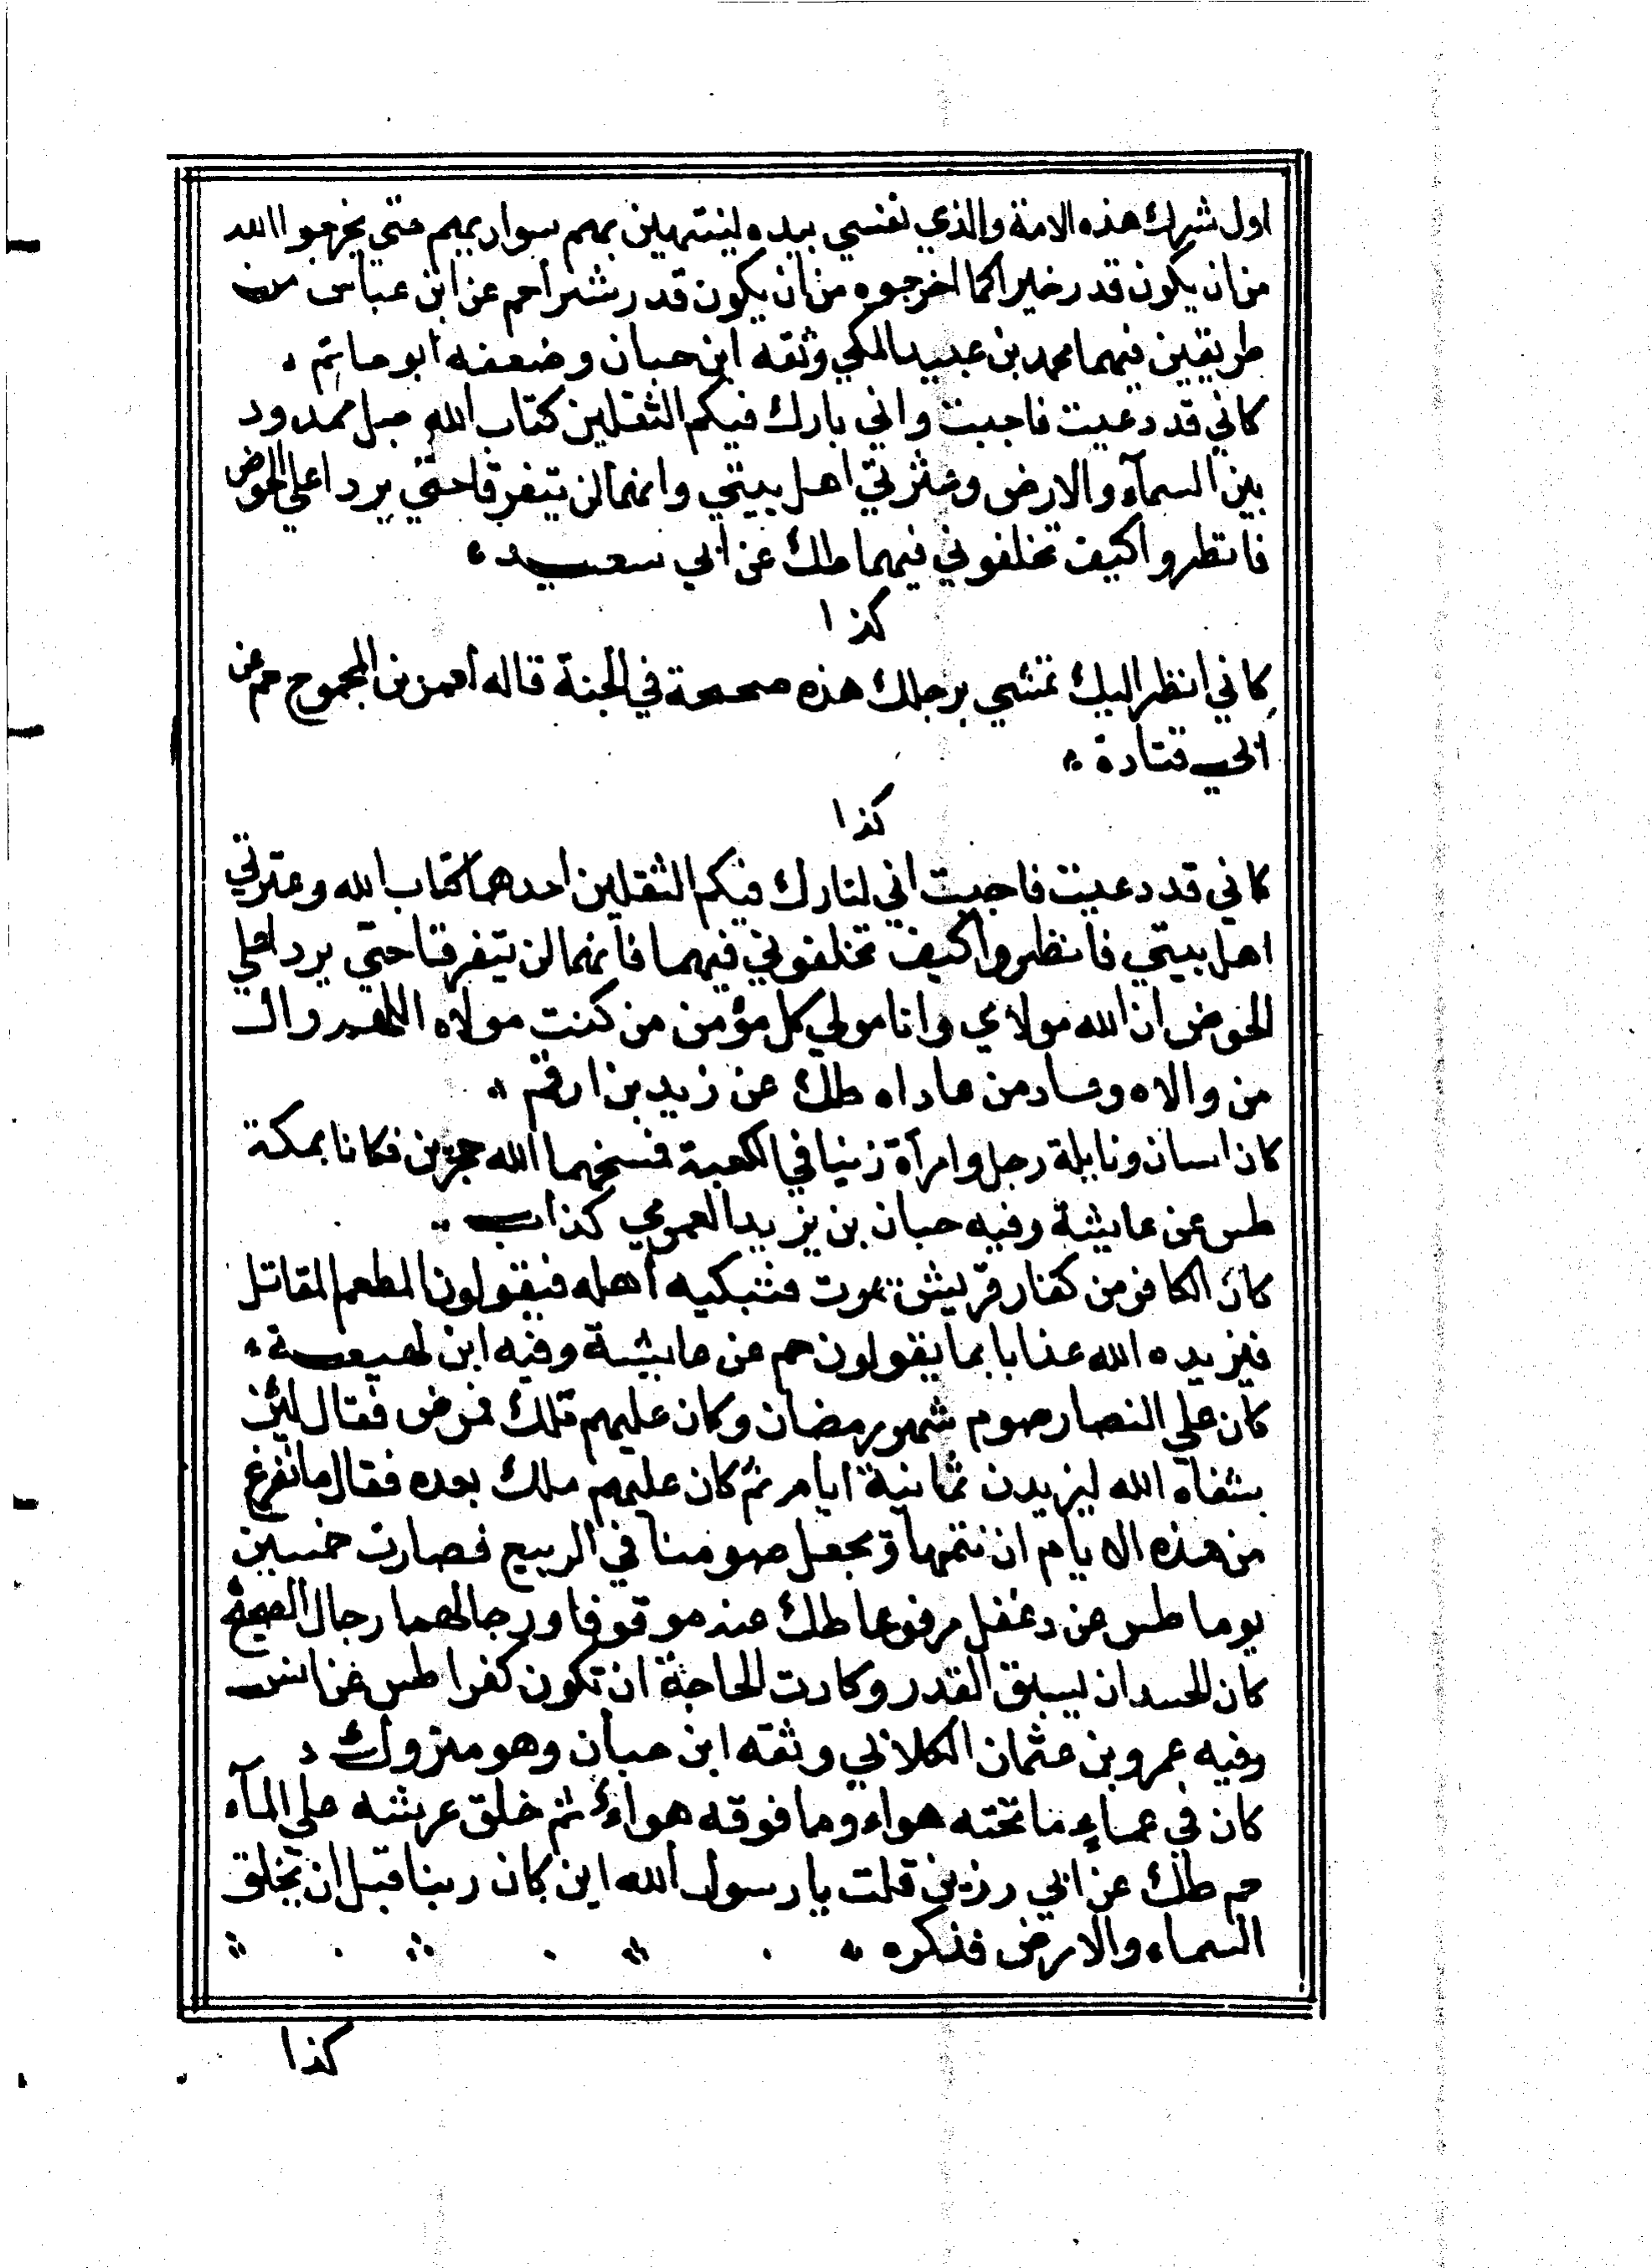 اول شرك هذه الامة والذي نفسي بيده لينتهين بهم سوارييم حتي يخرجوا الله
من ان يكون قدر خيرا كما اخرجوه من ان يكون قدر شرا حم عن ابن عباس من
طريقين فيهما محمد بن عبيد المكي وثقه ابن حبان وضعفه ابو حاتم
كاني قد دعيت فاجبت واني تارك فيكم الثقلين كتاب الله حبل ممدود
بين السماء والارض وعترتي اهل بيتي وانهما لن يتفرقا حتي يردا علي الحوض
فانظروا كيف تخلفوني فيهما طك عن ابي سعيد
كذا
كاني انظر اليك تمشي برجلك هذه صحيحة في الجنة قاله بن الجموح حم عن
ابي قتادة
كذا
كاني قد دعيت فاجبت اني لتارك فيكم الثقلين احدهما كتاب الله وعترتي
اهل بيتي فانظروا كيف تخلفوني فيهما فانهما لن يتفرقا حتي يردا علي
الحوض ان الله مولاي وانا مولي كل مؤمن من كنت مولاه اللهم وال
من والاه وعاد من عاداه طك عن زيد بن ارقم
كان اساف ونايلة رجل وامرآة زنيا في الكعبة فمسخهما الله حجرين فكانا بمكة
طس عن عايشة وفيه حبان بن يزيد كذاب
كان الكافر من كفار قريش يموت فتبكيه اهله فيقولون المطعم المقاتل
فيزيده الله عذابا بما يقولون حم عن عايشة وفيه ابن لهيعة
كان علي النصار صوم شهر رمضان وكان عليهم ملك فمرض فقال لئن
شفاه الله ليزيدن ثمانية ايام ثم كان عليهم ملك بعده فقال ما نفرغ
من هذه الايام ان نتمها ونجعل صومنا في الربيع فصارت خمسين
يوما طس عن دغفل مرفوعا طك عنه موقوفا ورجالهما رجال الصحيح
كان الحسد ان يسبق القدر وكادت الحاجة ان تكون كفرا طس عن انس
وفيه عمرو بن عثمان الكلابي وثقه ابن حبان وهو متروك
كان في عماء ما تحته هواء وما فوقه هواء ثم خلق عرشه علي الماء
حم طك عن ابي رزين قلت يا رسول الله اين كان ربنا قبل ان يخلق
السماء والارض فذكره
كذا